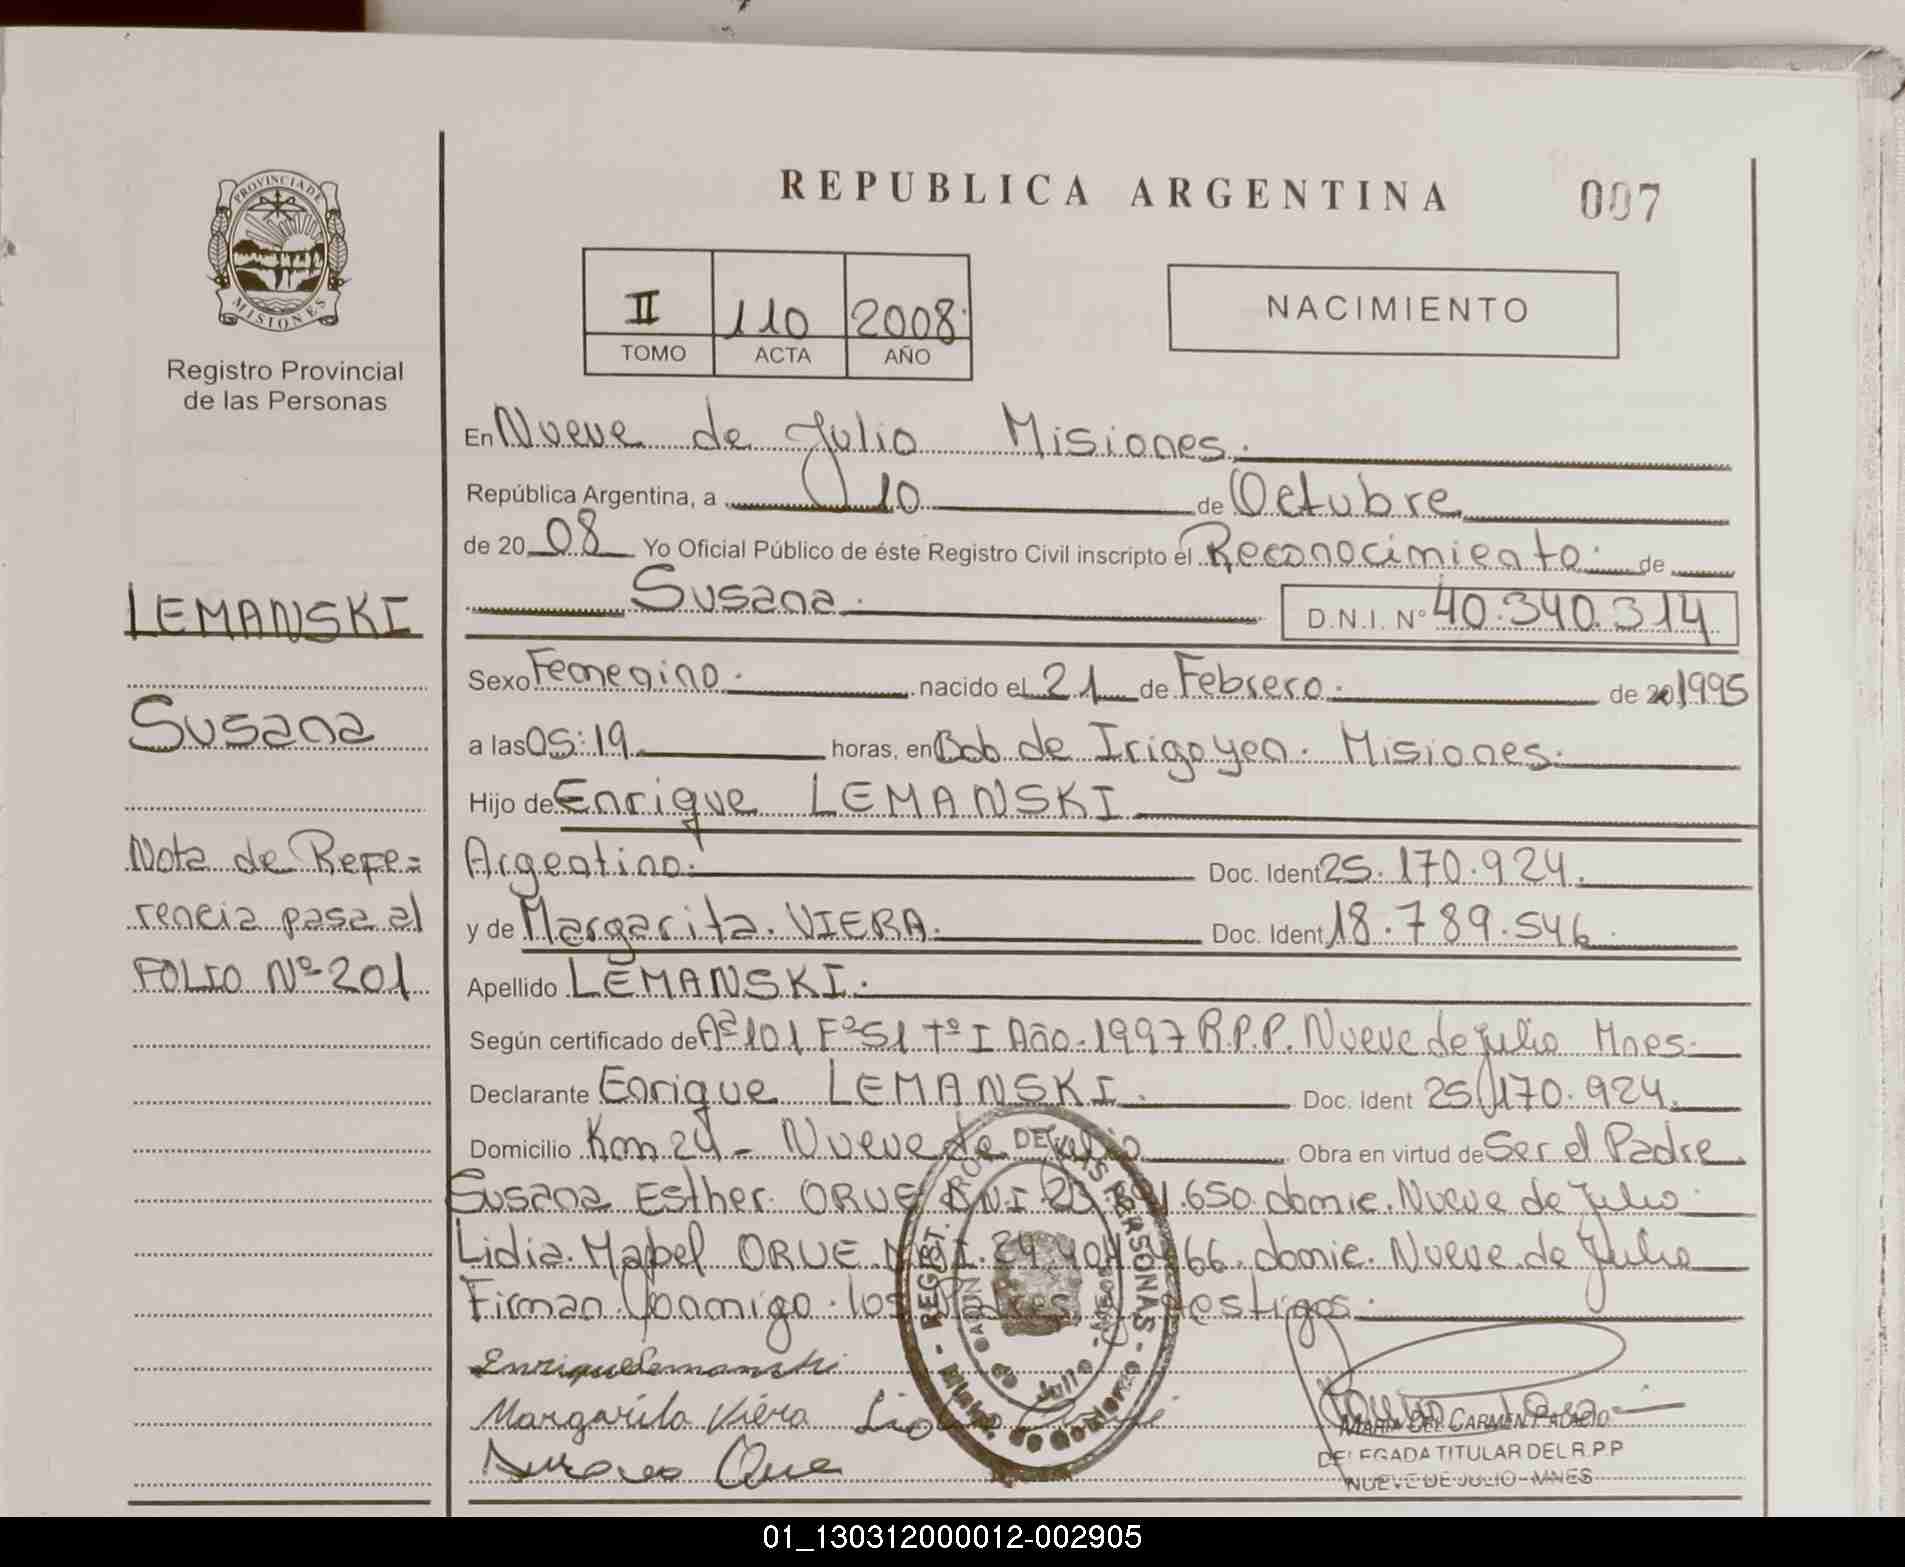 REPUBLICA ARGENTINA
007
PROVINCIA DE
MISIONES
Registro Provincial
de las Personas
II 110 2008
TOMO ACTA AÑO
NACIMIENTO
LEMANSKI
Susana
Nota de Refe=
rencia pasa al
FOLIO Nº 201
En Nueve de Julio Misiones.
República Argentina, a 10 de Octubre
de 2008 Yo Oficial Público de éste Registro Civil inscripto el Reconocimiento. de
Susana. D.N.I. Nº 40.340.314
Sexo Femenino. nacido el 21 de Febrero. de 20 1995
a las 05:19 horas, en Bdo de Irigoyen. Misiones.
Hijo de Enrique LEMANSKI
Argentino. Doc. Ident 25.170.924.
y de Margarita. VIERA. Doc. Ident 18.789.546.
Apellido LEMANSKI.
Según certificado de Aº 101 Fº 51 Tº I Año. 1997 R.P.P. Nueve de Julio Mnes.
Declarante Enrique LEMANSKI. Doc. Ident 25.170.924.
Domicilio Km 24 - Nueve de Julio Obra en virtud de Ser el Padre
Susana Esther. ORUE D.N.I 23. .650. domic. Nueve de Julio.
Lidia. Mabel ORUE. D.N.I. 24.404. 66. domic. Nueve de Julio
Firman Conmigo. los Padres y testigos.
Enrique Lemanski
Margarita Viera
REGIST. PROV. DE LAS PERSONAS
Minist. de Gobierno
de Julio
MARIA DEL CARMEN PALACIO
DELEGADA TITULAR DEL R.P.P
NUEVE DE JULIO - MNES
01_130312000012-002905